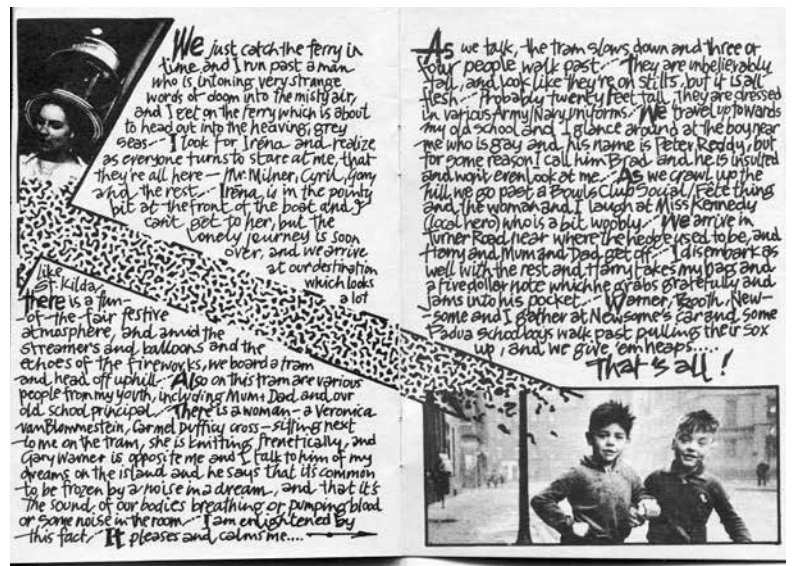 We just catch the ferry in
time, and I run past a man
who is intoning very strange
words of doom into the misty air,
and I get on the ferry which is about
to head out into the heaving, grey
seas... I look for Iréna and realize
as everyone turns to stare at me, that
they're all here - Mr. Milner, Cyril, Gary
and the rest... Iréna, is in the pointy
bit at the front of the boat and I
can't get to her, but the
lonely journey is soon
over, and we arrive
at our destination
which looks
a lot
like
St. Kilda,
there is a fun-
of-the fair festive
atmosphere, and amid the
streamers and balloons and the
echoes of the fireworks, we board a tram
and head off uphill... Also on this tram are various
people from my youth, including Mum + Dad, and our
old school principal... There is a woman - a Veronica
vanBlommestein, Carmel Dufficy cross - sitting next
to me on the tram, she is knitting frenetically, and
Gary Warner is opposite me and I talk to him of my
dreams on the island and he says that its common
to be frozen by a noise in a dream, and that it's
the sound of our bodies breathing or pumping blood
or some noise in the room... I am enlightened by
this fact... It pleases and calms me....
As we talk, the tram slows down and three or
four people walk past... They are unbelievably
tall, and look like they're on stilts, but it is all
flesh... Probably twenty feet tall, they are dressed
in various Army/Navy uniforms... We travel up towards
my old school and I glance around at the boy near
me who is gay and his name is Peter Reddy, but
for some reason I call him Brad and he is insulted
and won't even look at me... As we crawl up the
hill, we go past a Bowls Club Social/Fête thing
and the woman and I laugh at Miss Kennedy
(local hero) who is a bit woobly... We arrive in
Turner Road near where the hedge used to be, and
Harry and Mum and Dad get off... I disembark as
well with the rest and Harry takes my bag and
a five dollar note which he grabs gratefully and
jams into his pocket... Warner, Booth, New-
some and I gather at Newsome's car and some
Padua schoolboys walk past pulling their sox
up, and we give 'em heaps.....
That's all!